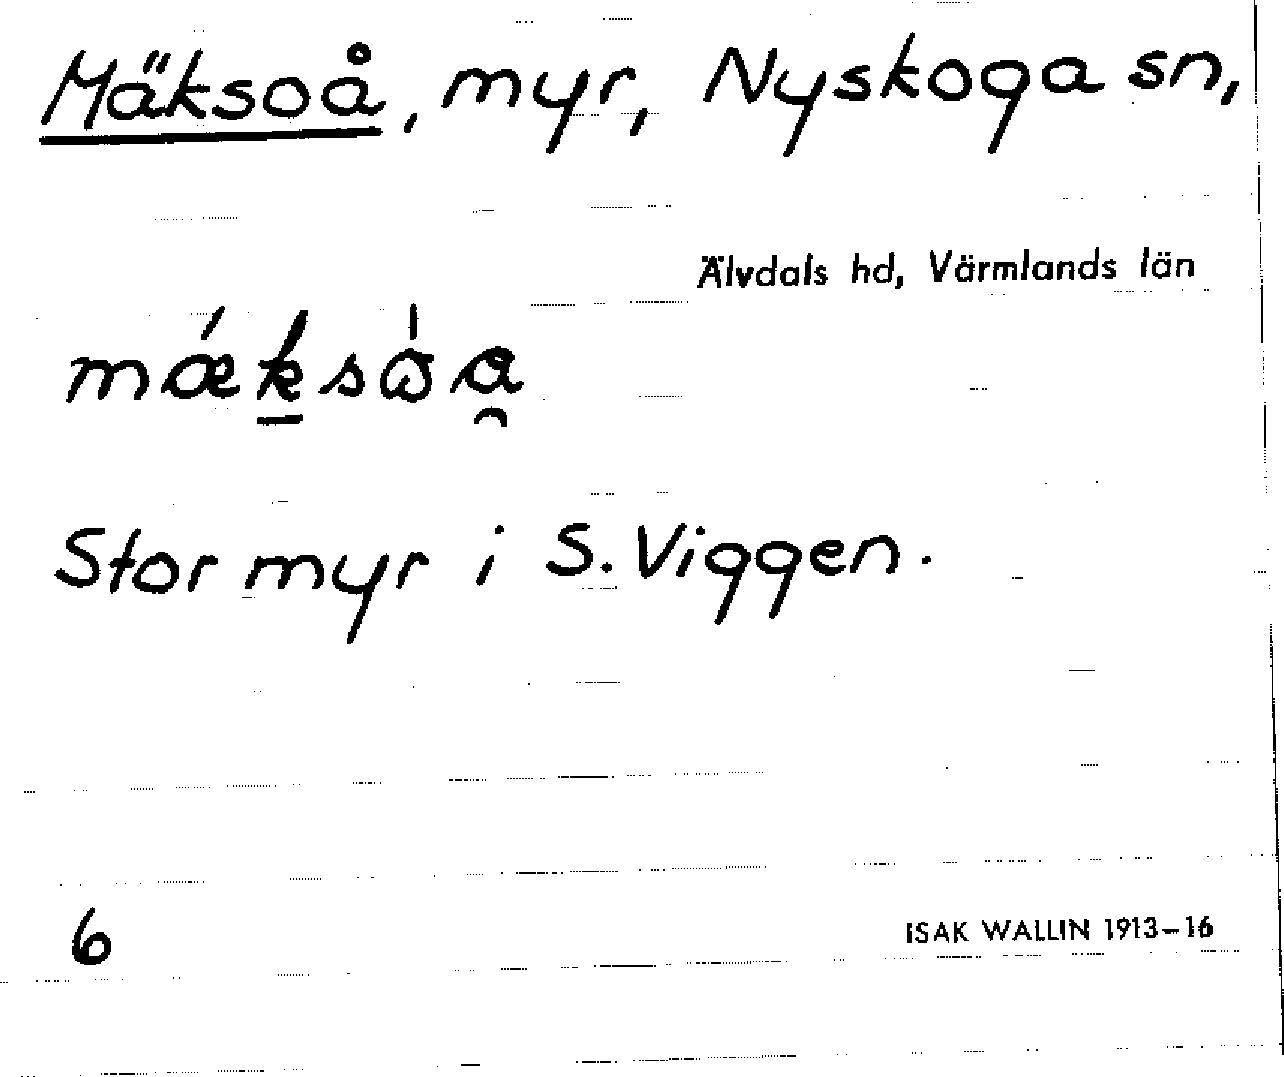 Mäksoå, myr, Nyskoga sn,
Älvdals hd, Värmlands län
Stor myr i S. Viggen.
6
ISAK WALLIN 1913–16